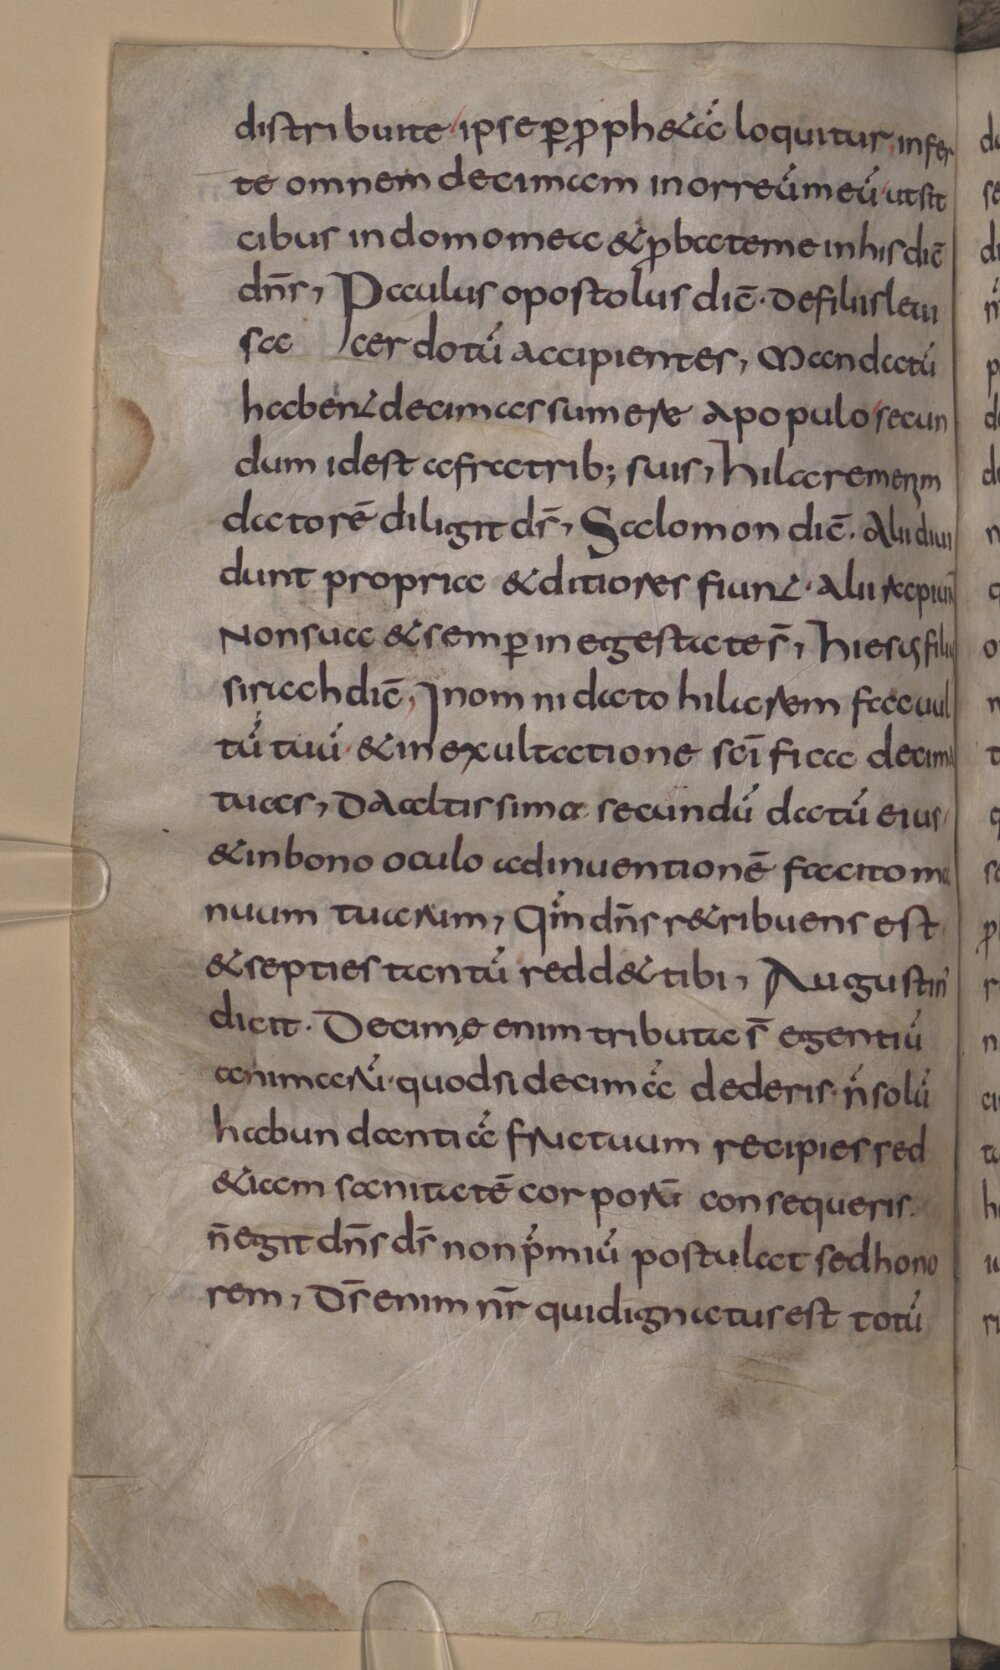 distribuite ipse ꝑ ꝓph&ā loquitur, infer
te omnem decimam in orreū meū ut sit
cibus in domo mea & ꝓbate me in his dic̄
dn̄s, Paulus opostolus dic̄. De filiis leui
sacerdotū accipientes, Mandatū
haben& decimas sumere a populo secun
dum id est a fratrib; suis, hilarem enim
datorē diligit ds̄, Salomon dic̄. Alii diui
dunt propria & ditiores fiun&. alii rapiun̄
Non sua & semꝑ in egestate s̄, hiesus filiu
sirach dic̄, In omni dato hilarem fac uul
tū tuū & in exultatione sc̄ifica decima
tuas, Da altissimo secundū datū eius
& in bono oculo adinuentionē facito ma
nuum tuarum, Qm̄ dn̄s r&ribuens est
& septies tantū redd& tibi, Augustin'
dicit. Decimę enim tributa s̄ egentiū
animarū. quod si decimā dederis. n̄ solū
habundantiā fructuum recipies sed
&iam sanitatē corporū consequeris.
n̄ egit dn̄s ds̄ non p̄miū postulat sed hono
rem, Ds̄ enim nr̄ qui dignatus est totū